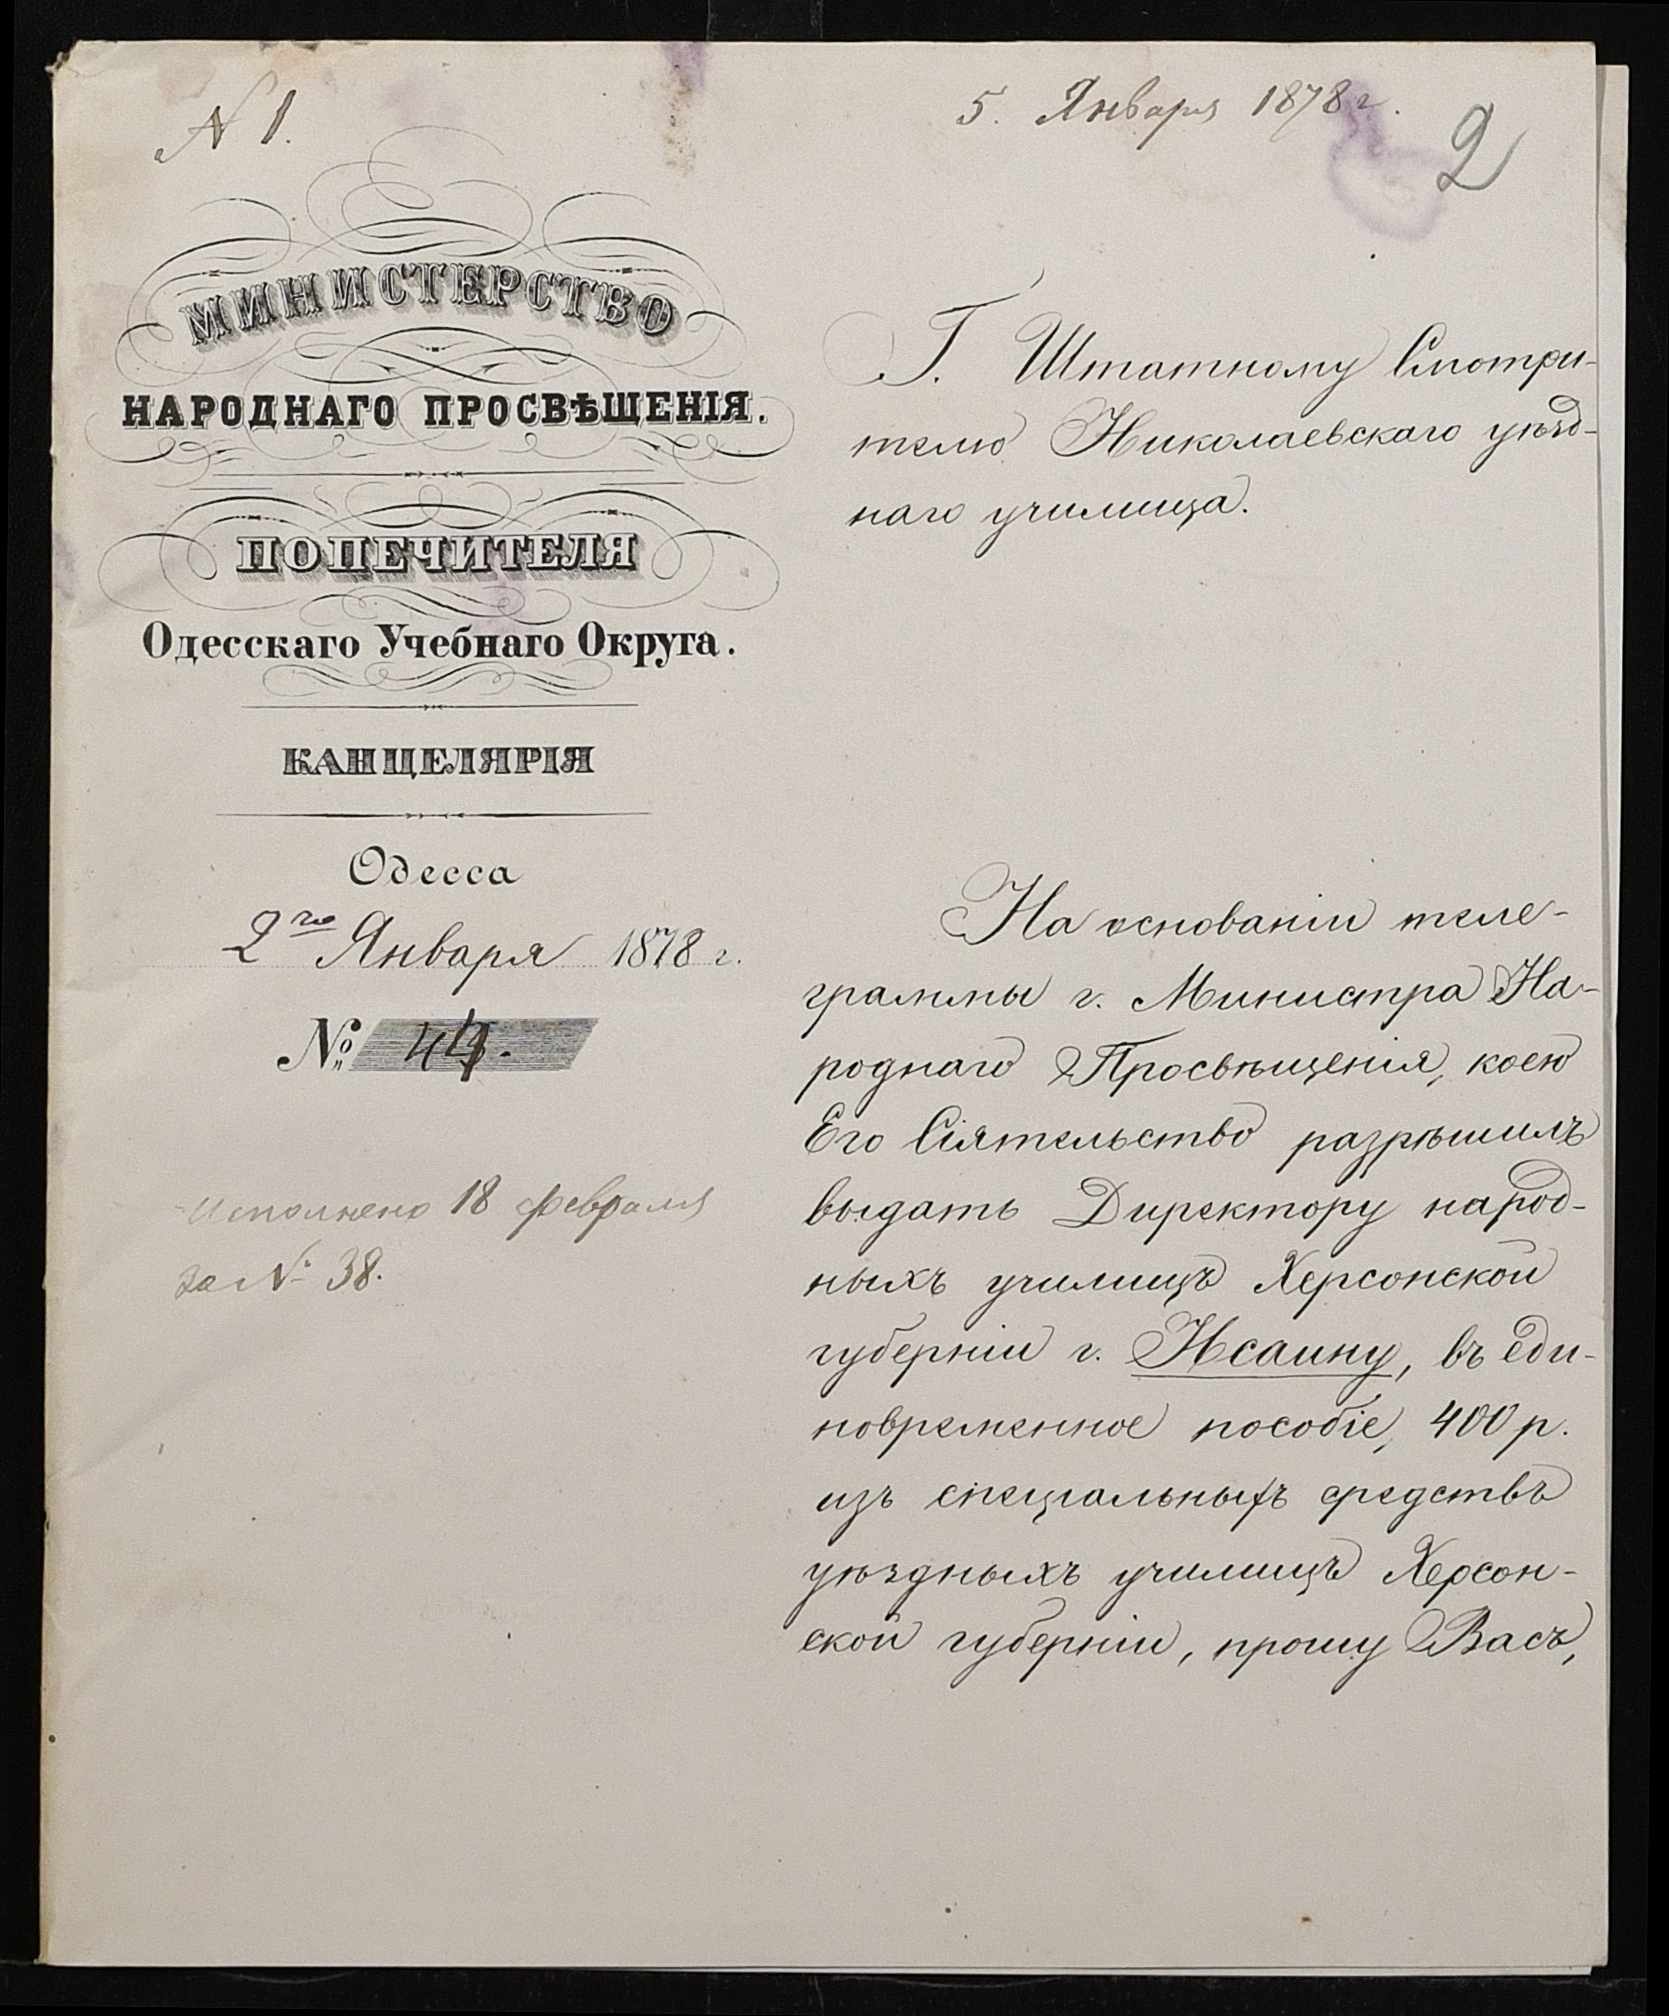 N 1.
5. Января 1878 г.
2
МИНИСТЕРСТВО
НАРОДНАГО ПРОСВѢЩЕНІЯ.
ПОПЕЧИТЕЛЯ
Одесскаго Учебнаго Округа.
КАНЦЕЛЯРІЯ
Одесса
2го Января 1878 г.
№ 44.
Исполнено 18 февраля
за № 38.
Г. Штатному Смотри-
телю Николаевскаго уѣзд-
наго училища.
На основаніи теле-
граммы г. Министра На-
роднаго Просвѣщенія, коею
Его Сіятельство разрѣшилъ
выдать Директору народ-
ныхъ училищъ Херсонской
губерніи г. , въ еди-
новременное пособіе, 400 р.
изъ спеціальныхъ средствъ
уѣздныхъ училищъ Херсон-
ской губерніи, прошу Васъ,